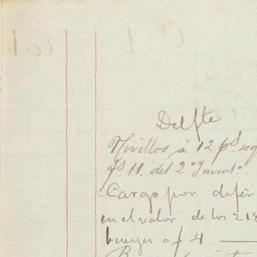 Del fte
Novillos á 12 ps. seg
fs 11. del 2º Invento
Cargo por difer
en el valor de los 218
bueyes a $ 4